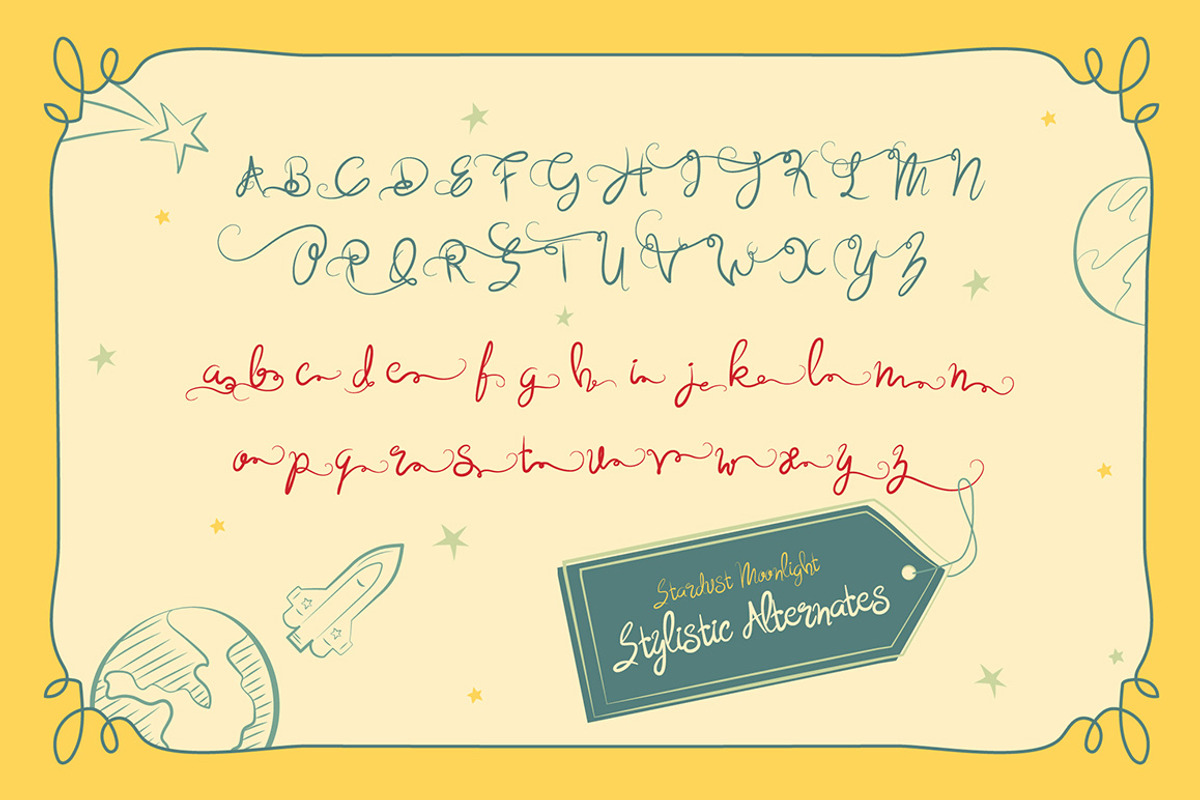 A B C D E F G H I J K L M N
O P Q R S T U V W X Y Z
a b c d e f g h i j k l m n
o p q r s t u v w x y z
Stardust Moonlight
Stylistic Alternates